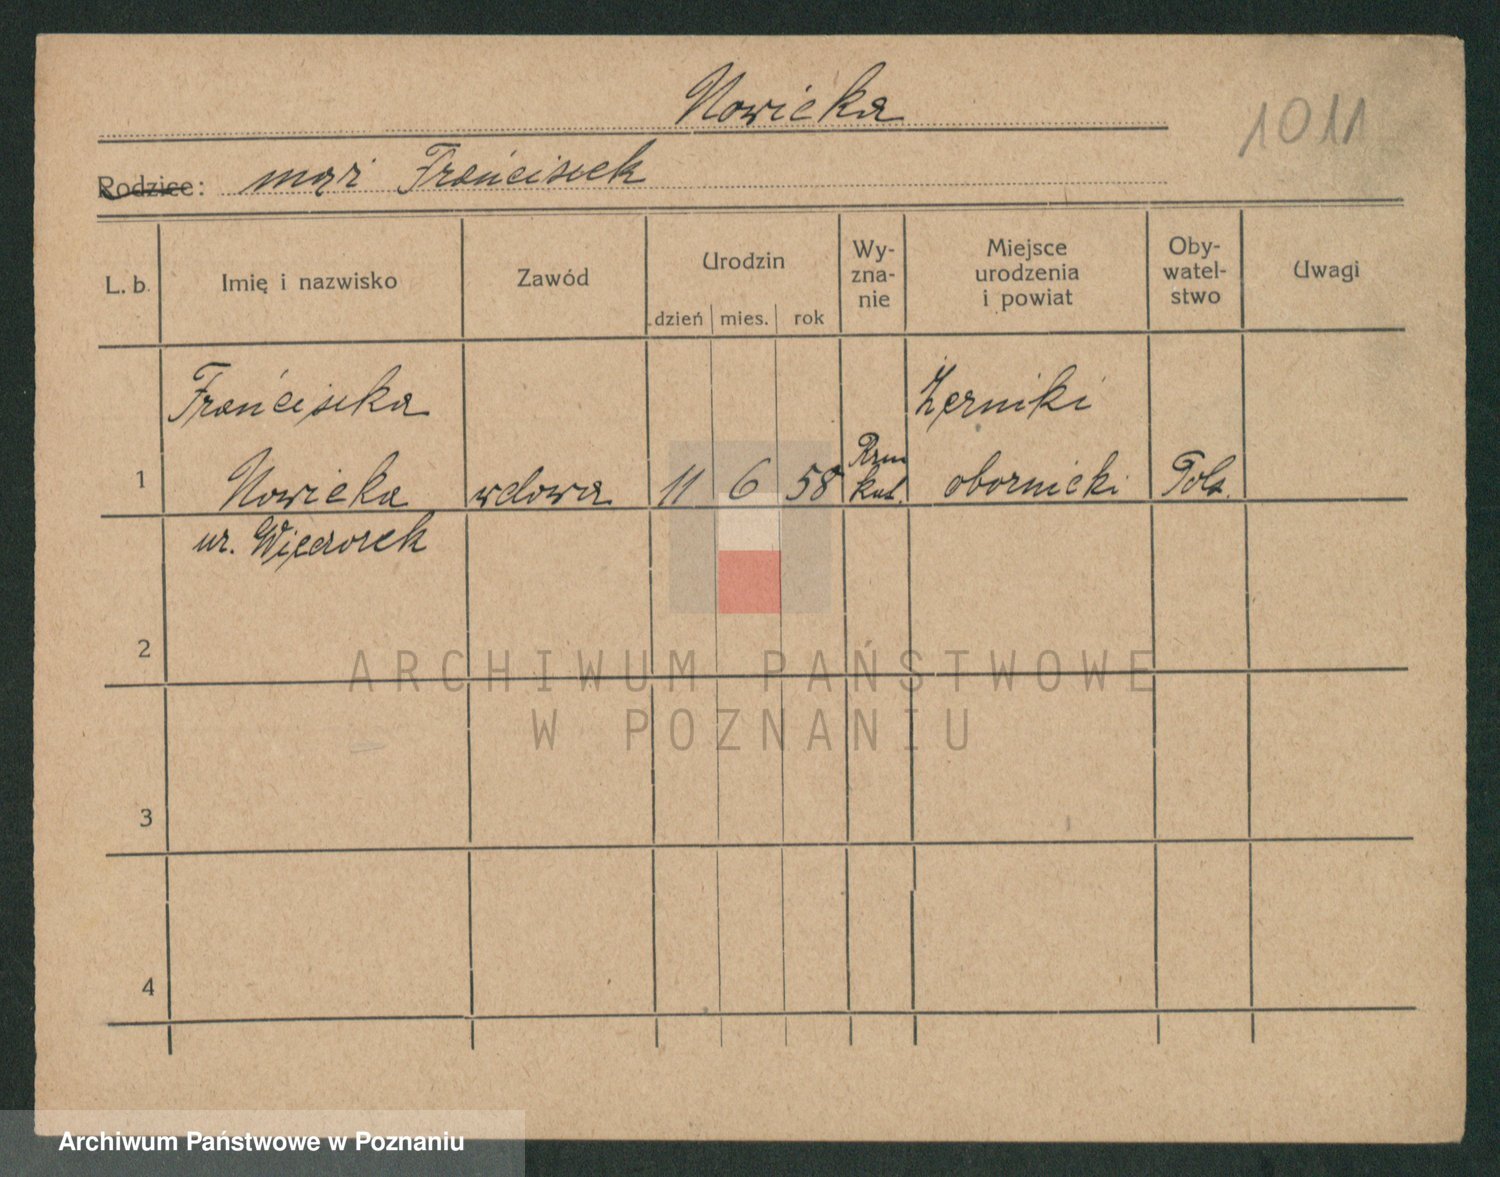 Nowicka
1011
Rodzice: mąż Franciszek
L. b. Imię i nazwisko Zawód Urodzin Wy-zna-nie Miejsce urodzenia i powiat Oby-watel-stwo Uwagi
dzień mies. rok
Franciszka Żerniki
1 Nowicka wdowa 11 6 58 Rzm kat. obornicki Pols.
ur. Więczorek
2
3
4
ARCHIWUM PAŃSTWOWE
W POZNANIU
Archiwum Państwowe w Poznaniu